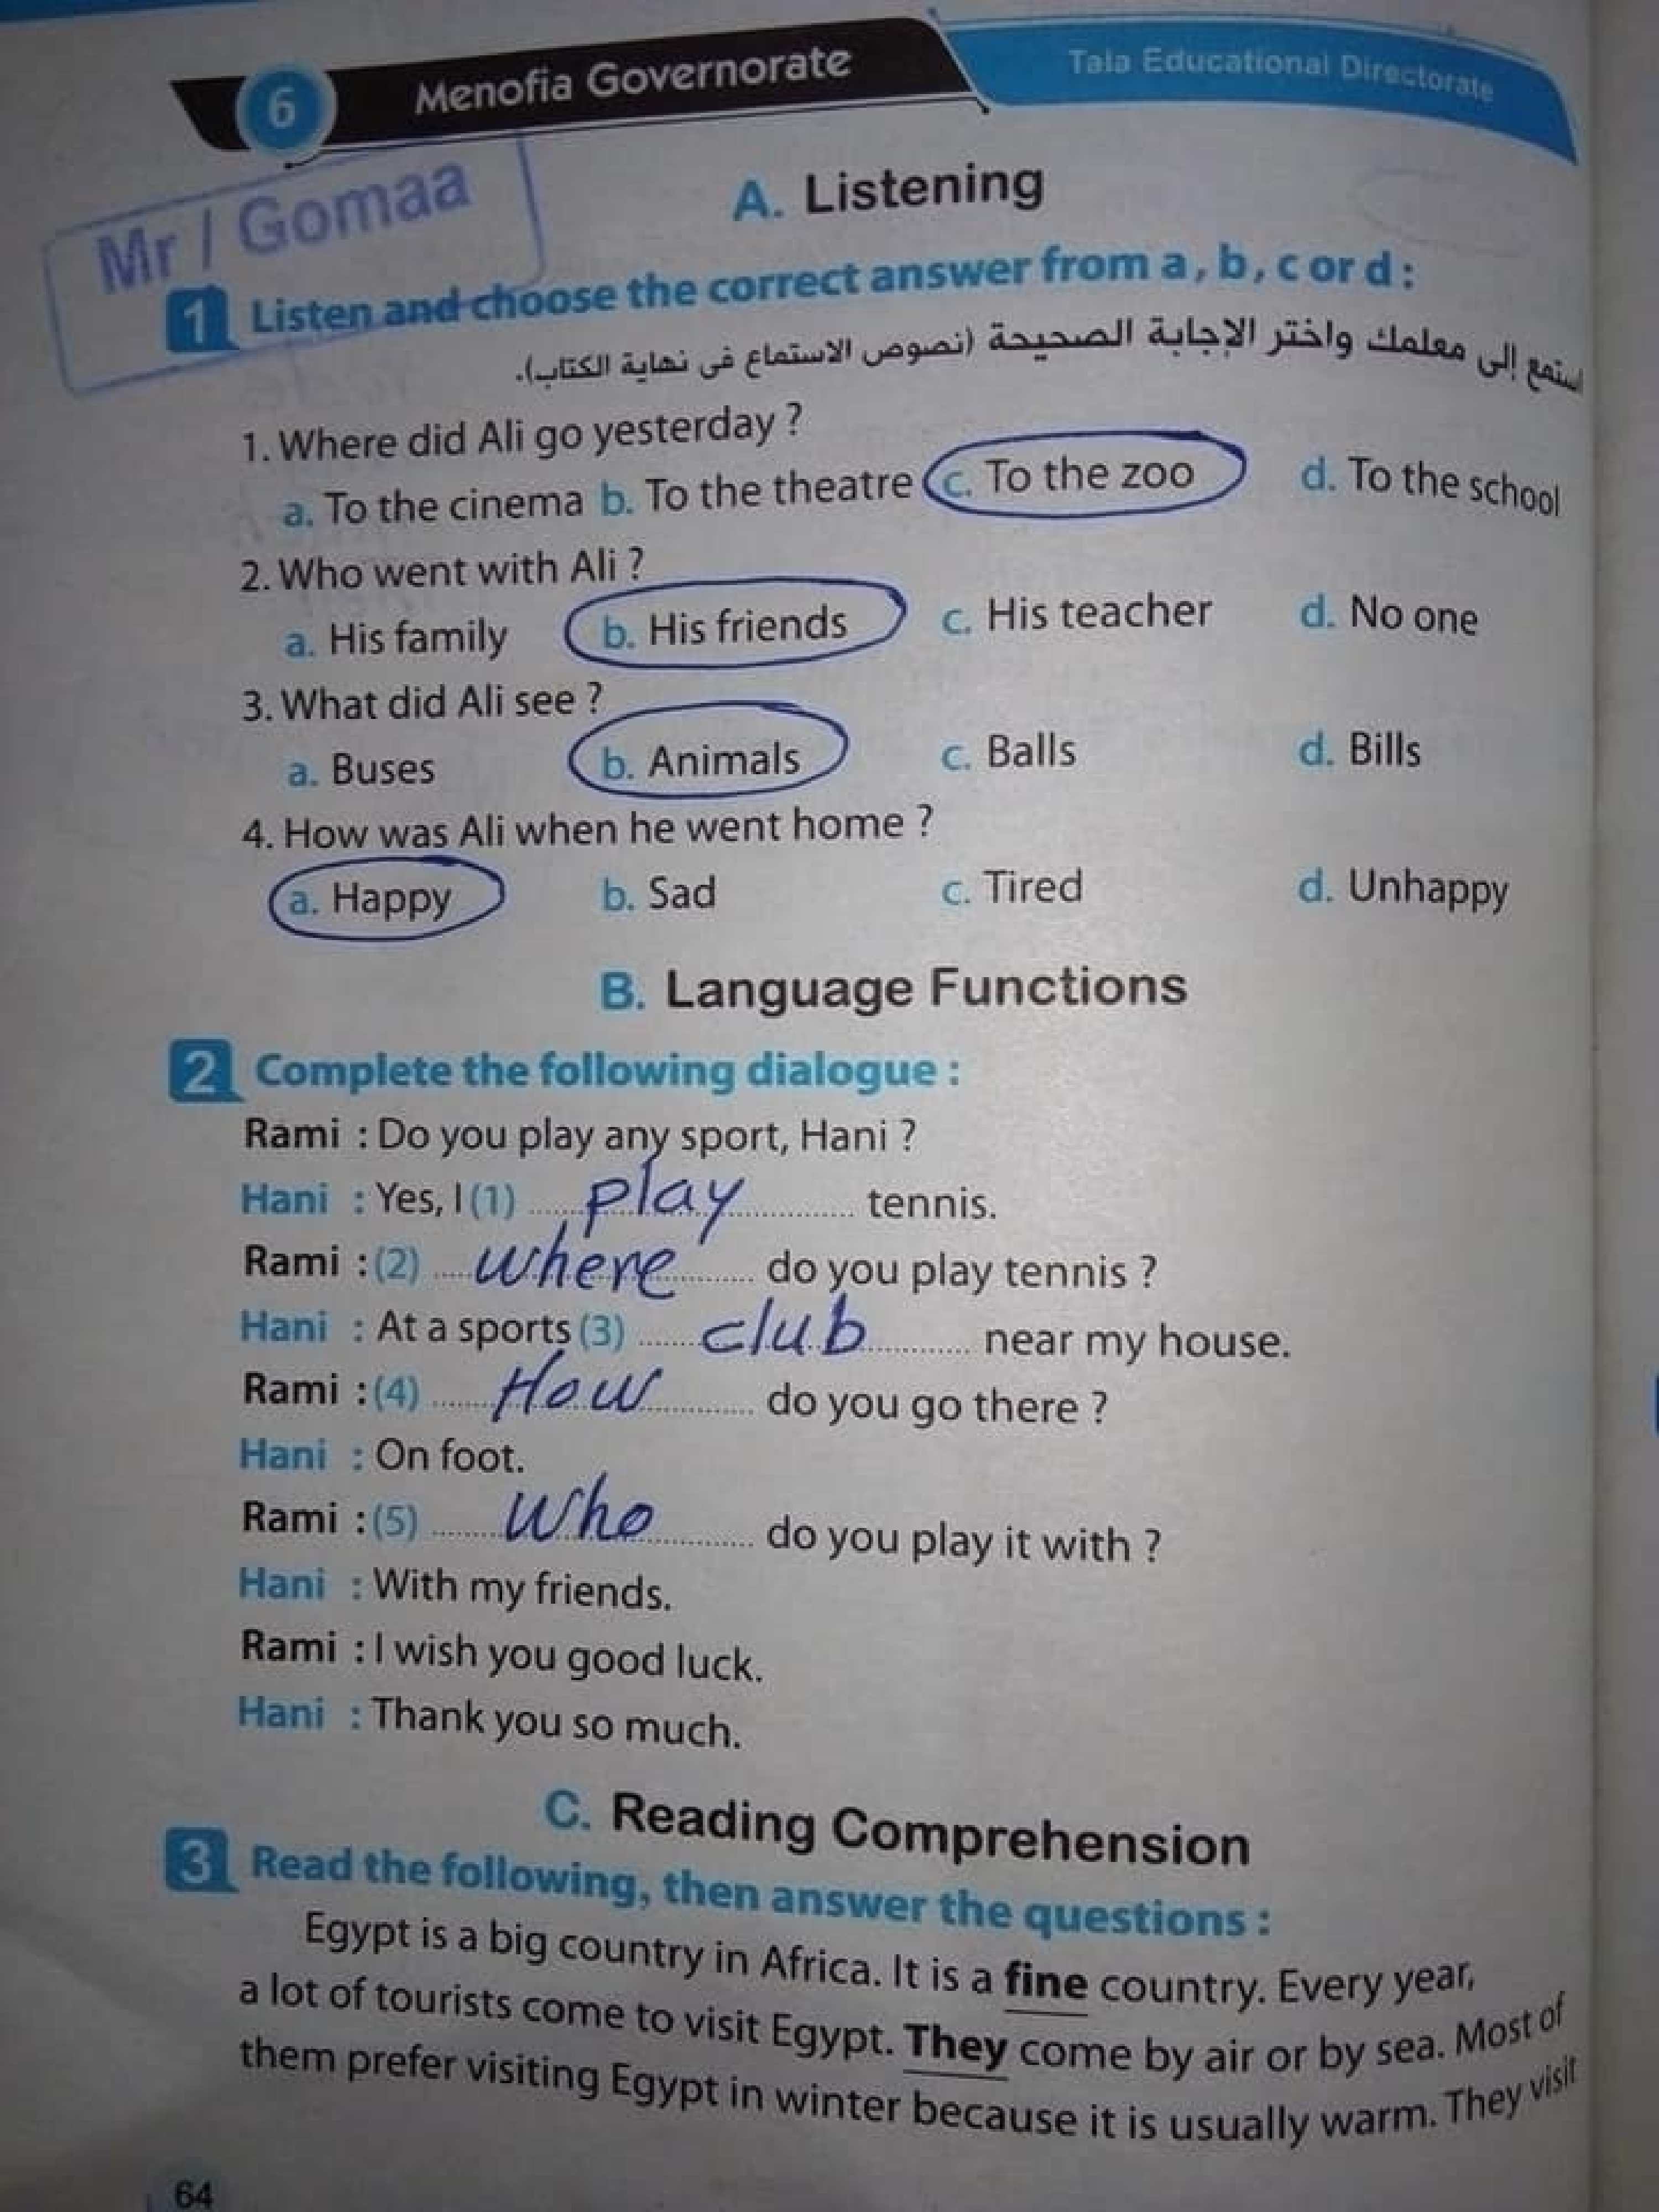 6 Menofia Governorate Tala Educational Directorate
Mr / Gomaa
A. Listening
1 Listen and choose the correct answer from a, b, c or d :
استمع إلى معلمك واختر الإجابة الصحيحة (نصوص الاستماع فى نهاية الكتاب).
1. Where did Ali go yesterday ?
a. To the cinema b. To the theatre c. To the zoo d. To the school
2. Who went with Ali ?
a. His family b. His friends c. His teacher d. No one
3. What did Ali see ?
a. Buses b. Animals c. Balls d. Bills
4. How was Ali when he went home ?
a. Happy b. Sad c. Tired d. Unhappy
B. Language Functions
2 Complete the following dialogue :
Rami : Do you play any sport, Hani ?
Hani : Yes, I (1) play tennis.
Rami : (2) where do you play tennis ?
Hani : At a sports (3) club near my house.
Rami : (4) How do you go there ?
Hani : On foot.
Rami : (5) Who do you play it with ?
Hani : With my friends.
Rami : I wish you good luck.
Hani : Thank you so much.
C. Reading Comprehension
3 Read the following, then answer the questions :
Egypt is a big country in Africa. It is a fine country. Every year,
a lot of tourists come to visit Egypt. They come by air or by sea. Most of
them prefer visiting Egypt in winter because it is usually warm. They visit
64